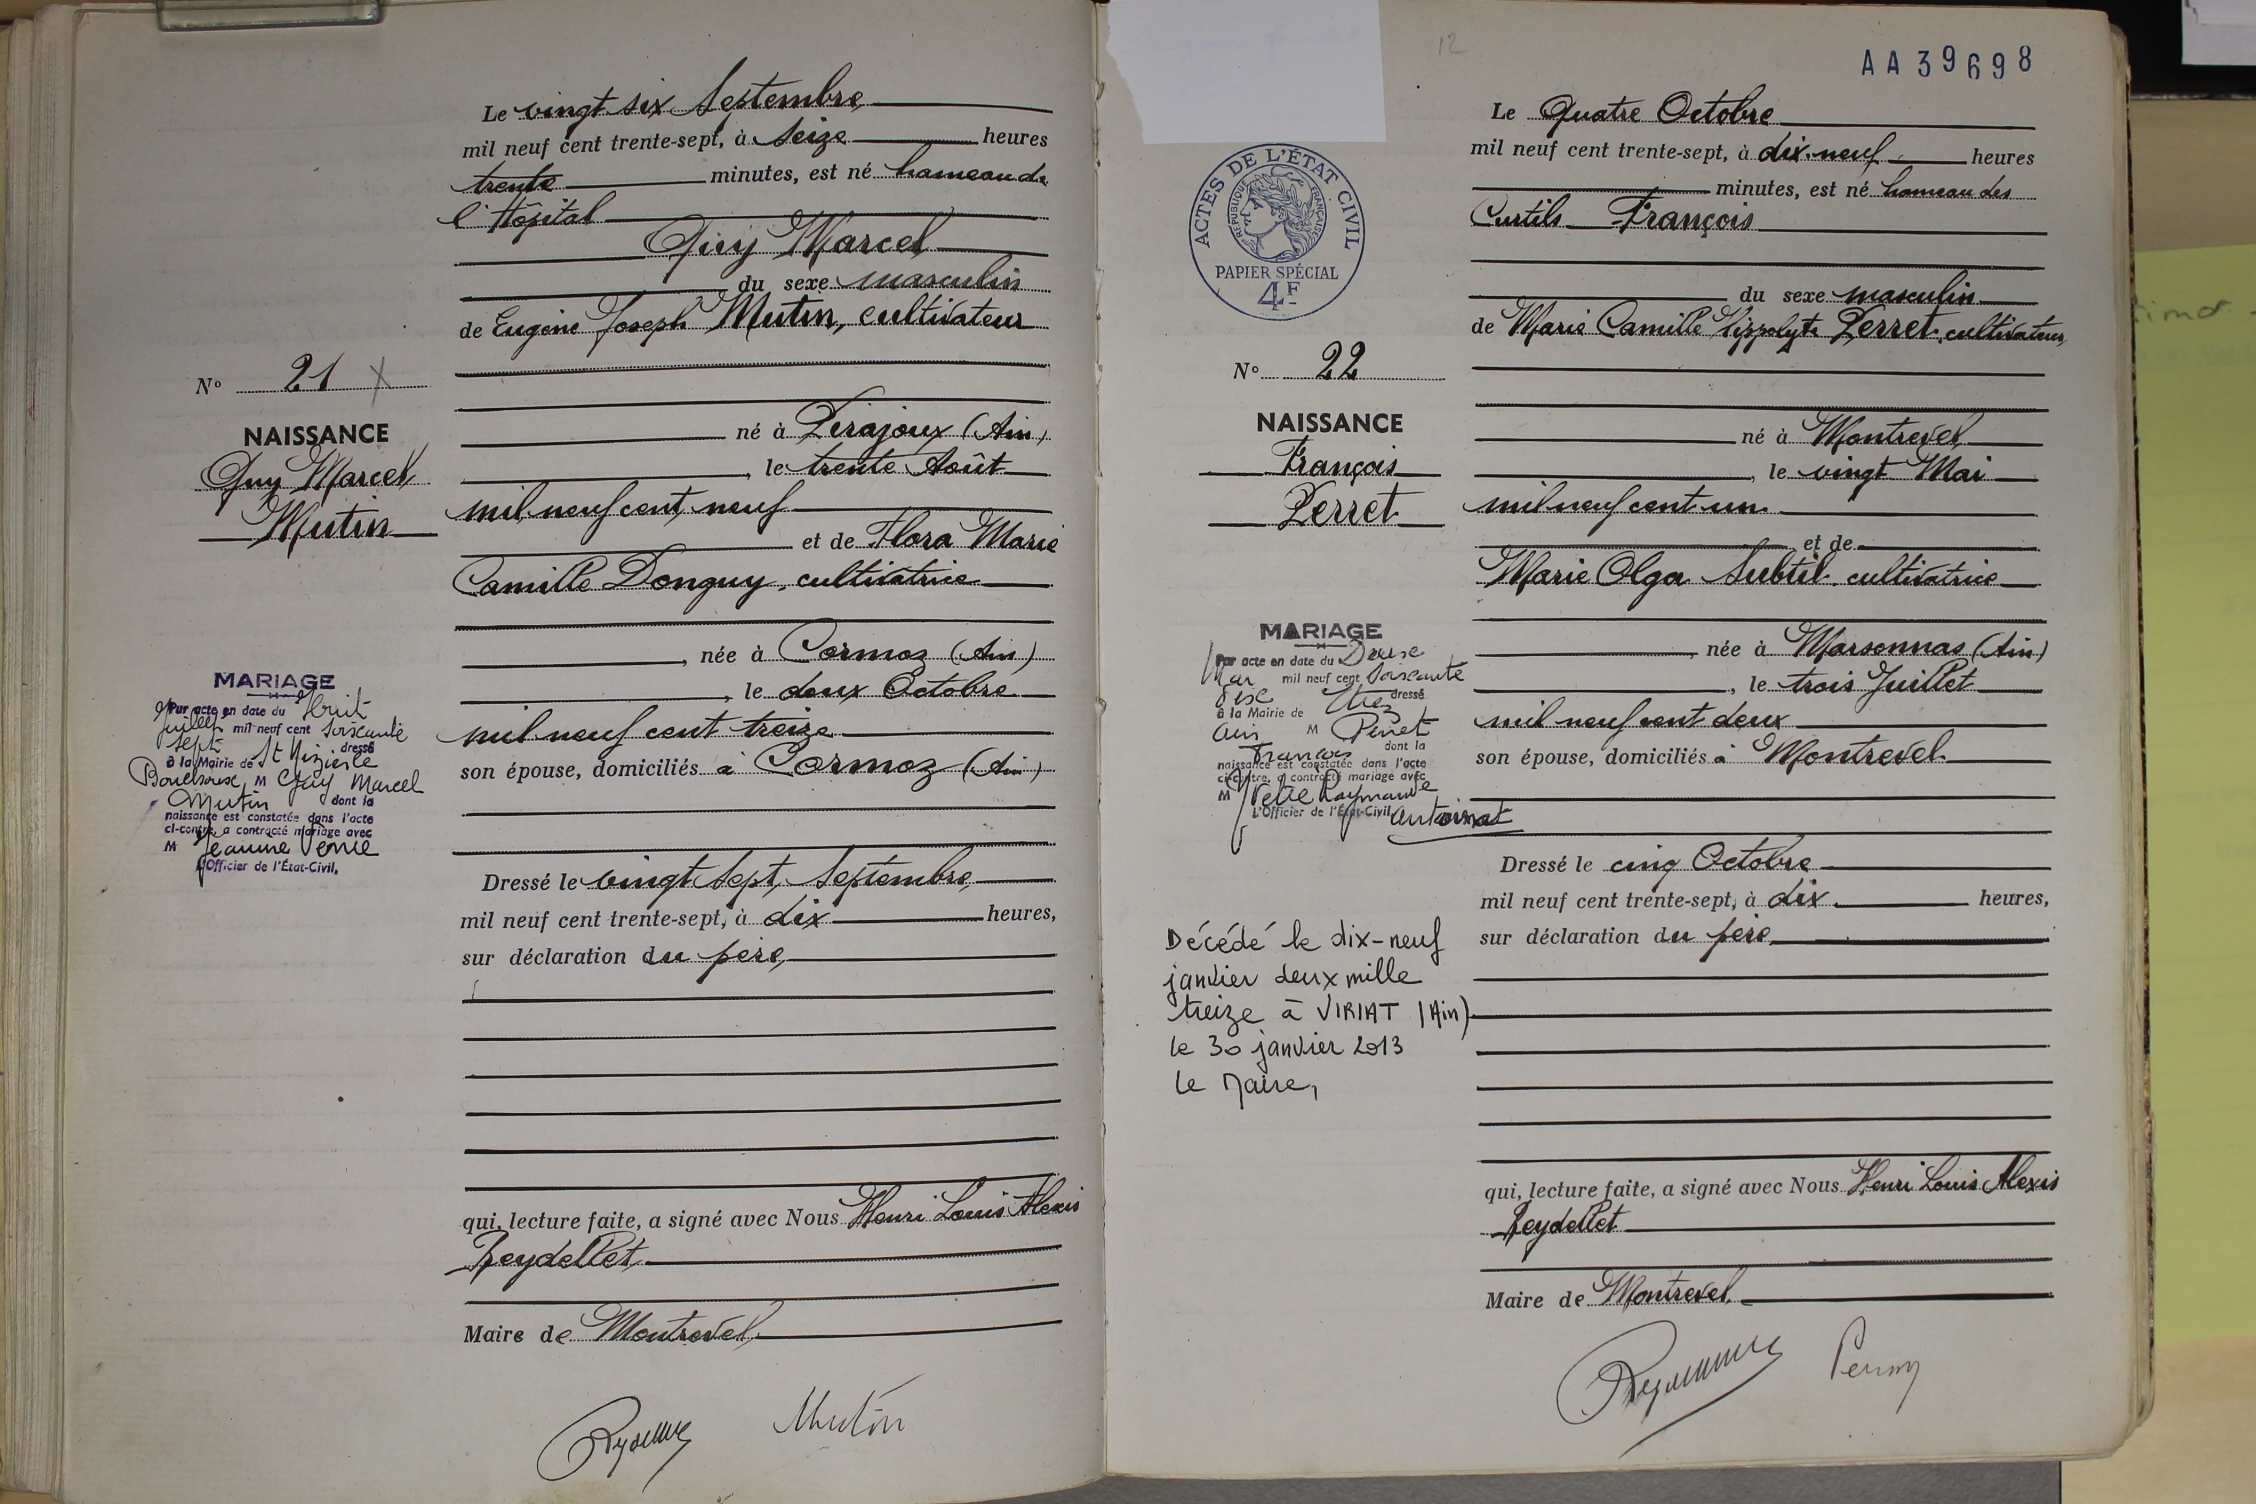 Le vingt six Septembre
mil neuf cent trente-sept, à seize heures
trente minutes, est né hameau de
l'Hôpital
Guy Marcel
du sexe masculin
de Eugène Joseph Mutin, cultivateur
né à Pirajoux (Ain)
, le trente Août
mil neuf cent neuf
et de Flora Marie
Camille Donguy, cultivatrice
, née à Cormoz (Ain)
, le deux Octobre
mil neuf cent treize
son épouse, domiciliés à Cormoz (Ain)
Dressé le vingt sept Septembre
mil neuf cent trente-sept, à dix heures,
sur déclaration du père,
qui, lecture faite, a signé avec Nous Henri Louis Alexis
Reydellet
Maire de Montrevel
Mutin
No 21 X
NAISSANCE
Guy Marcel
Mutin
MARIAGE
Par acte en date du Huit
Juillet mil neuf cent soixante
sept dressé
à la Mairie de St Nizier le
Bouchoux M Guy Marcel
Mutin dont la
naissance est constatée dans l'acte
ci-contre, a contracté mariage avec
M Jeanne
L'Officier de l'État-Civil,
12
AA39698
ACTES DE L'ÉTAT CIVIL
RÉPUBLIQUE FRANÇAISE
PAPIER SPÉCIAL
4F
Le Quatre Octobre
mil neuf cent trente-sept, à dix-neuf heures
minutes, est né hameau des
Curtils François
du sexe masculin
de Marie Camille Hippolyte Perret, cultivateur
né à Montrevel
, le vingt Mai
mil neuf cent un
et de
Marie Olga Subtil, cultivatrice
, née à Marsonnas (Ain)
, le trois Juillet
mil neuf cent deux
son épouse, domiciliés à Montrevel
Dressé le cinq Octobre
mil neuf cent trente-sept, à dix heures,
sur déclaration du père
qui, lecture faite, a signé avec Nous Henri Louis Alexis
Reydellet
Maire de Montrevel
No 22
NAISSANCE
François
Perret
MARIAGE
Par acte en date du Douze
Mai mil neuf cent soixante
dressé
à la Mairie de
Ain M Perret
François dont la
naissance est constatée dans l'acte
ci-contre, a contracté mariage avec
M Yvette Raymande
L'Officier de l'État-Civil, Antoinat
Décédé le dix-neuf
janvier deux mille
treize à VIRIAT (Ain)
le 30 janvier 2013
Le Maire,